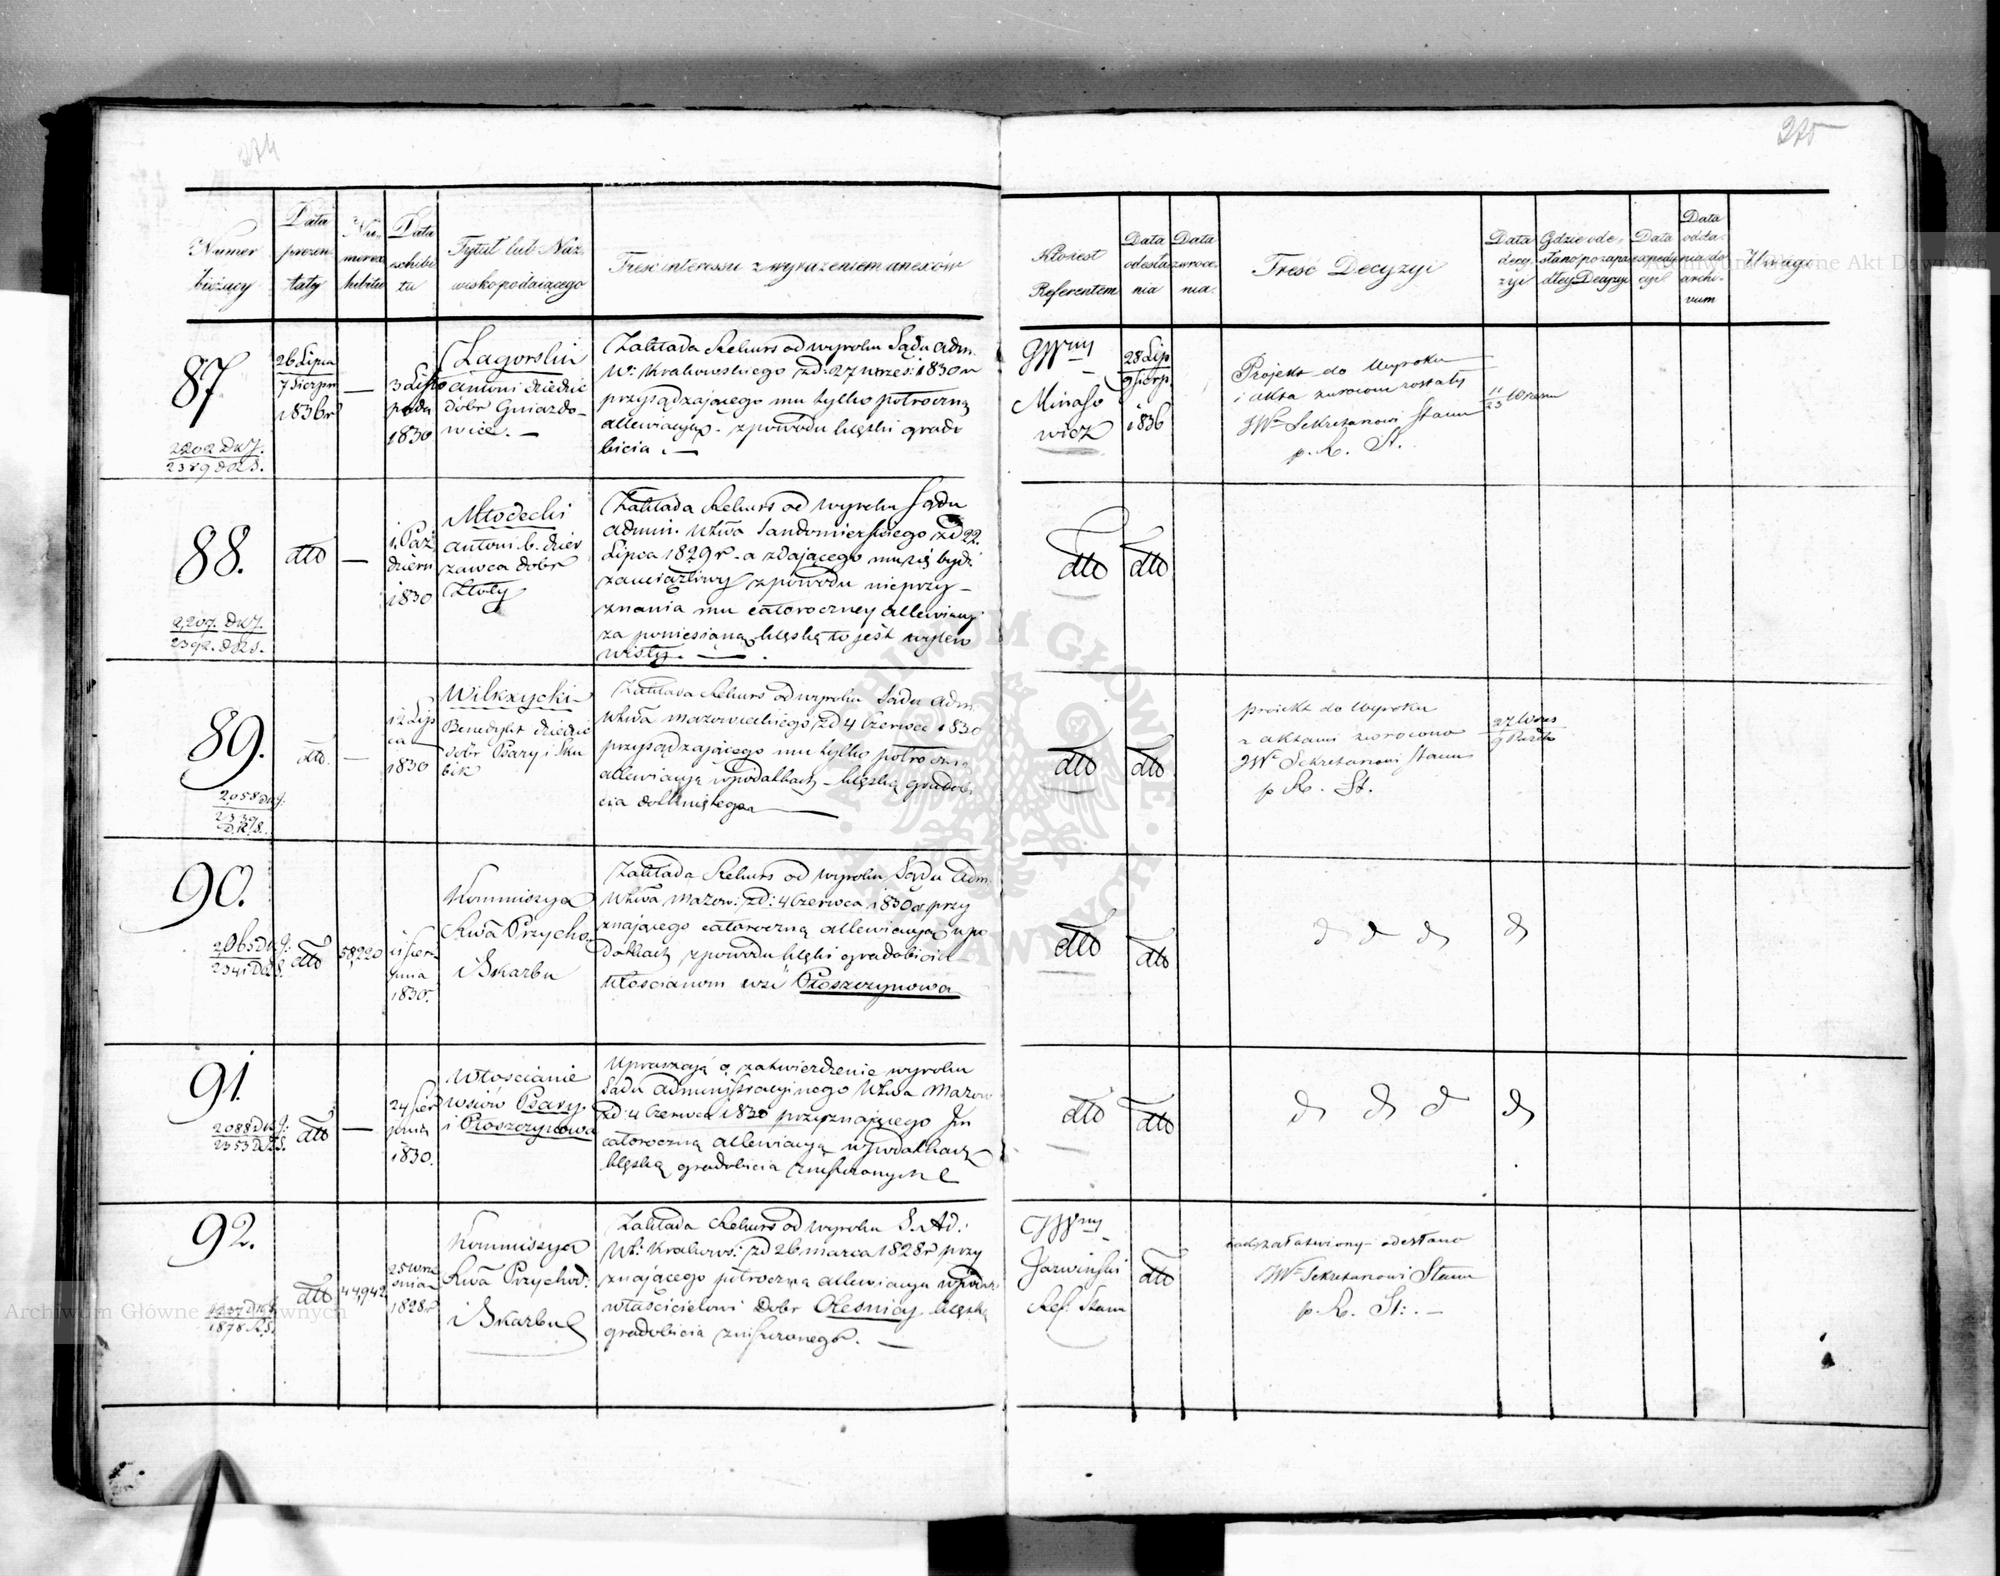 274
275
Numer bieżący
Data prezentaty
Numer exhibitu
Data exhibitu
Tytuł lub Nazwisko podaiącego
Treść interessu z wyrażeniem anexów
Referentem
Data odesłania
Data zwrocenia
Treść Decyzyi
Data decyzyi
Gdzie odesłano po zapadłey Decyzyi
Data expedycyi
Data oddania do archivum
Uwagi
87.
2202 DWJ.
2389 DRS.
26 Lipca
7 Sierpn
1836 r
—
3 Listo
pada
1830
Zagorskiu
Antoni dziedzic
dóbr Gniazdo-
wice. —
Zakłada Rekurs od wyroku Sądu Adm.
W: Krakowskiego z d: 27 wrześ: 1830 r
przysądzającego mu tylko półroczną
allewiacyą - z powodu klęski grado
bicia. —
JW
Minaso
wicz
28 Lip
9 Sierp
1836
Projekt do Wyroku
i akta zwrocone zostały
JW Sekretarzowi Stanu
p. R. St.
11
23 Wrześn
88.
2,207. DWJ.
2392. DRS.
dtto
—
1. Paź
dziern
1830
Młodecki
Antoni b. dzier
zawca dobr
Złoty
Zakłada Rekurs od wyroku Sądu
Admin. Wtwa Sandomierskiego z d 22.
Lipca 1829 r. a zdającego mu się bydź
zauciążliwy z powodu nieprzy-
znania mu całoroczney allewiacyi
za poniesioną klęskę to jest wylew
Wisły. —
dtto
dtto
89.
2,058 DWJ.
2339
DRS.
dtto.
—
12 Lip
ca
1830
Wilkxycki
Benedykt dziedzic
dobr Psary i Sku
bik
Zakłada Rekurs od wyroku Sadu Adm.
Wtwa Mazowieckiego z d 4 Czerwca 1830
przysądzającego mu tylko półroczną
allewiacyą w podatkach - klęską gradobi
cia dotkniętego —
dtto
dtto
projekt do Wyroku
z aktami zwrocono
JW Sekretarzowi Stanu
p R. St.
27 Wrześ
9 Paźdz
90.
2,065 DWJ:
2341 DRS.
dtto
58,220
21 Sier-
pnia
1830.
Kommissya
Rwa Przycho.
i Skarbu
Zakłada Rekurs od wyroku Sądu Adm.
Wtwa Mazow: z d: 4 Czerwca 1830 r przy
znającego całoroczną allewiacyą w po
datkach z powodu klęski gradobicia
Włościanom wsi Płoszczynowa
dtto
dtto
d d d d
91.
2088 DWJ:
2353 DRS.
dtto
—
24 Sier
pnia
1830.
Włoscianie
wsiów Psary
i Płoszczynowa
Upraszają o zatwierdzenie wyroku
Sadu Administracyjnego Wtwa Mazow
z d: 4 Czerwca 1830 przyznającego Im
całoroczną allewiacyą w podatkach
klęską gradobicia zniszczonych
dtto
dtto
d d d d
92.
1878 R.S.
dtto
44,942
25 Wrze
śnia
1828 r
Kommissya
Rwa Przychod.
i Skarbu
Zakłada Rekurs od wyroku S. Ad:
Wt: Krakows: z d 26 marca 1828 r przy
znającego półroczną allewiacyą w podat
właścicielowi Dobr Olesnicy klęską
gradobicia zniszczonego. —
JW
Jarwiński
Ref. Stanu
dtto
załatwiony odesłano
JW Sekretarzowi Stanu
p. R. St: . —
Archiwum Główne Akt Dawnych
Archiwum Główne Akt Dawnych
ARCHIWUM GŁÓWNE AKT DAWNYCH